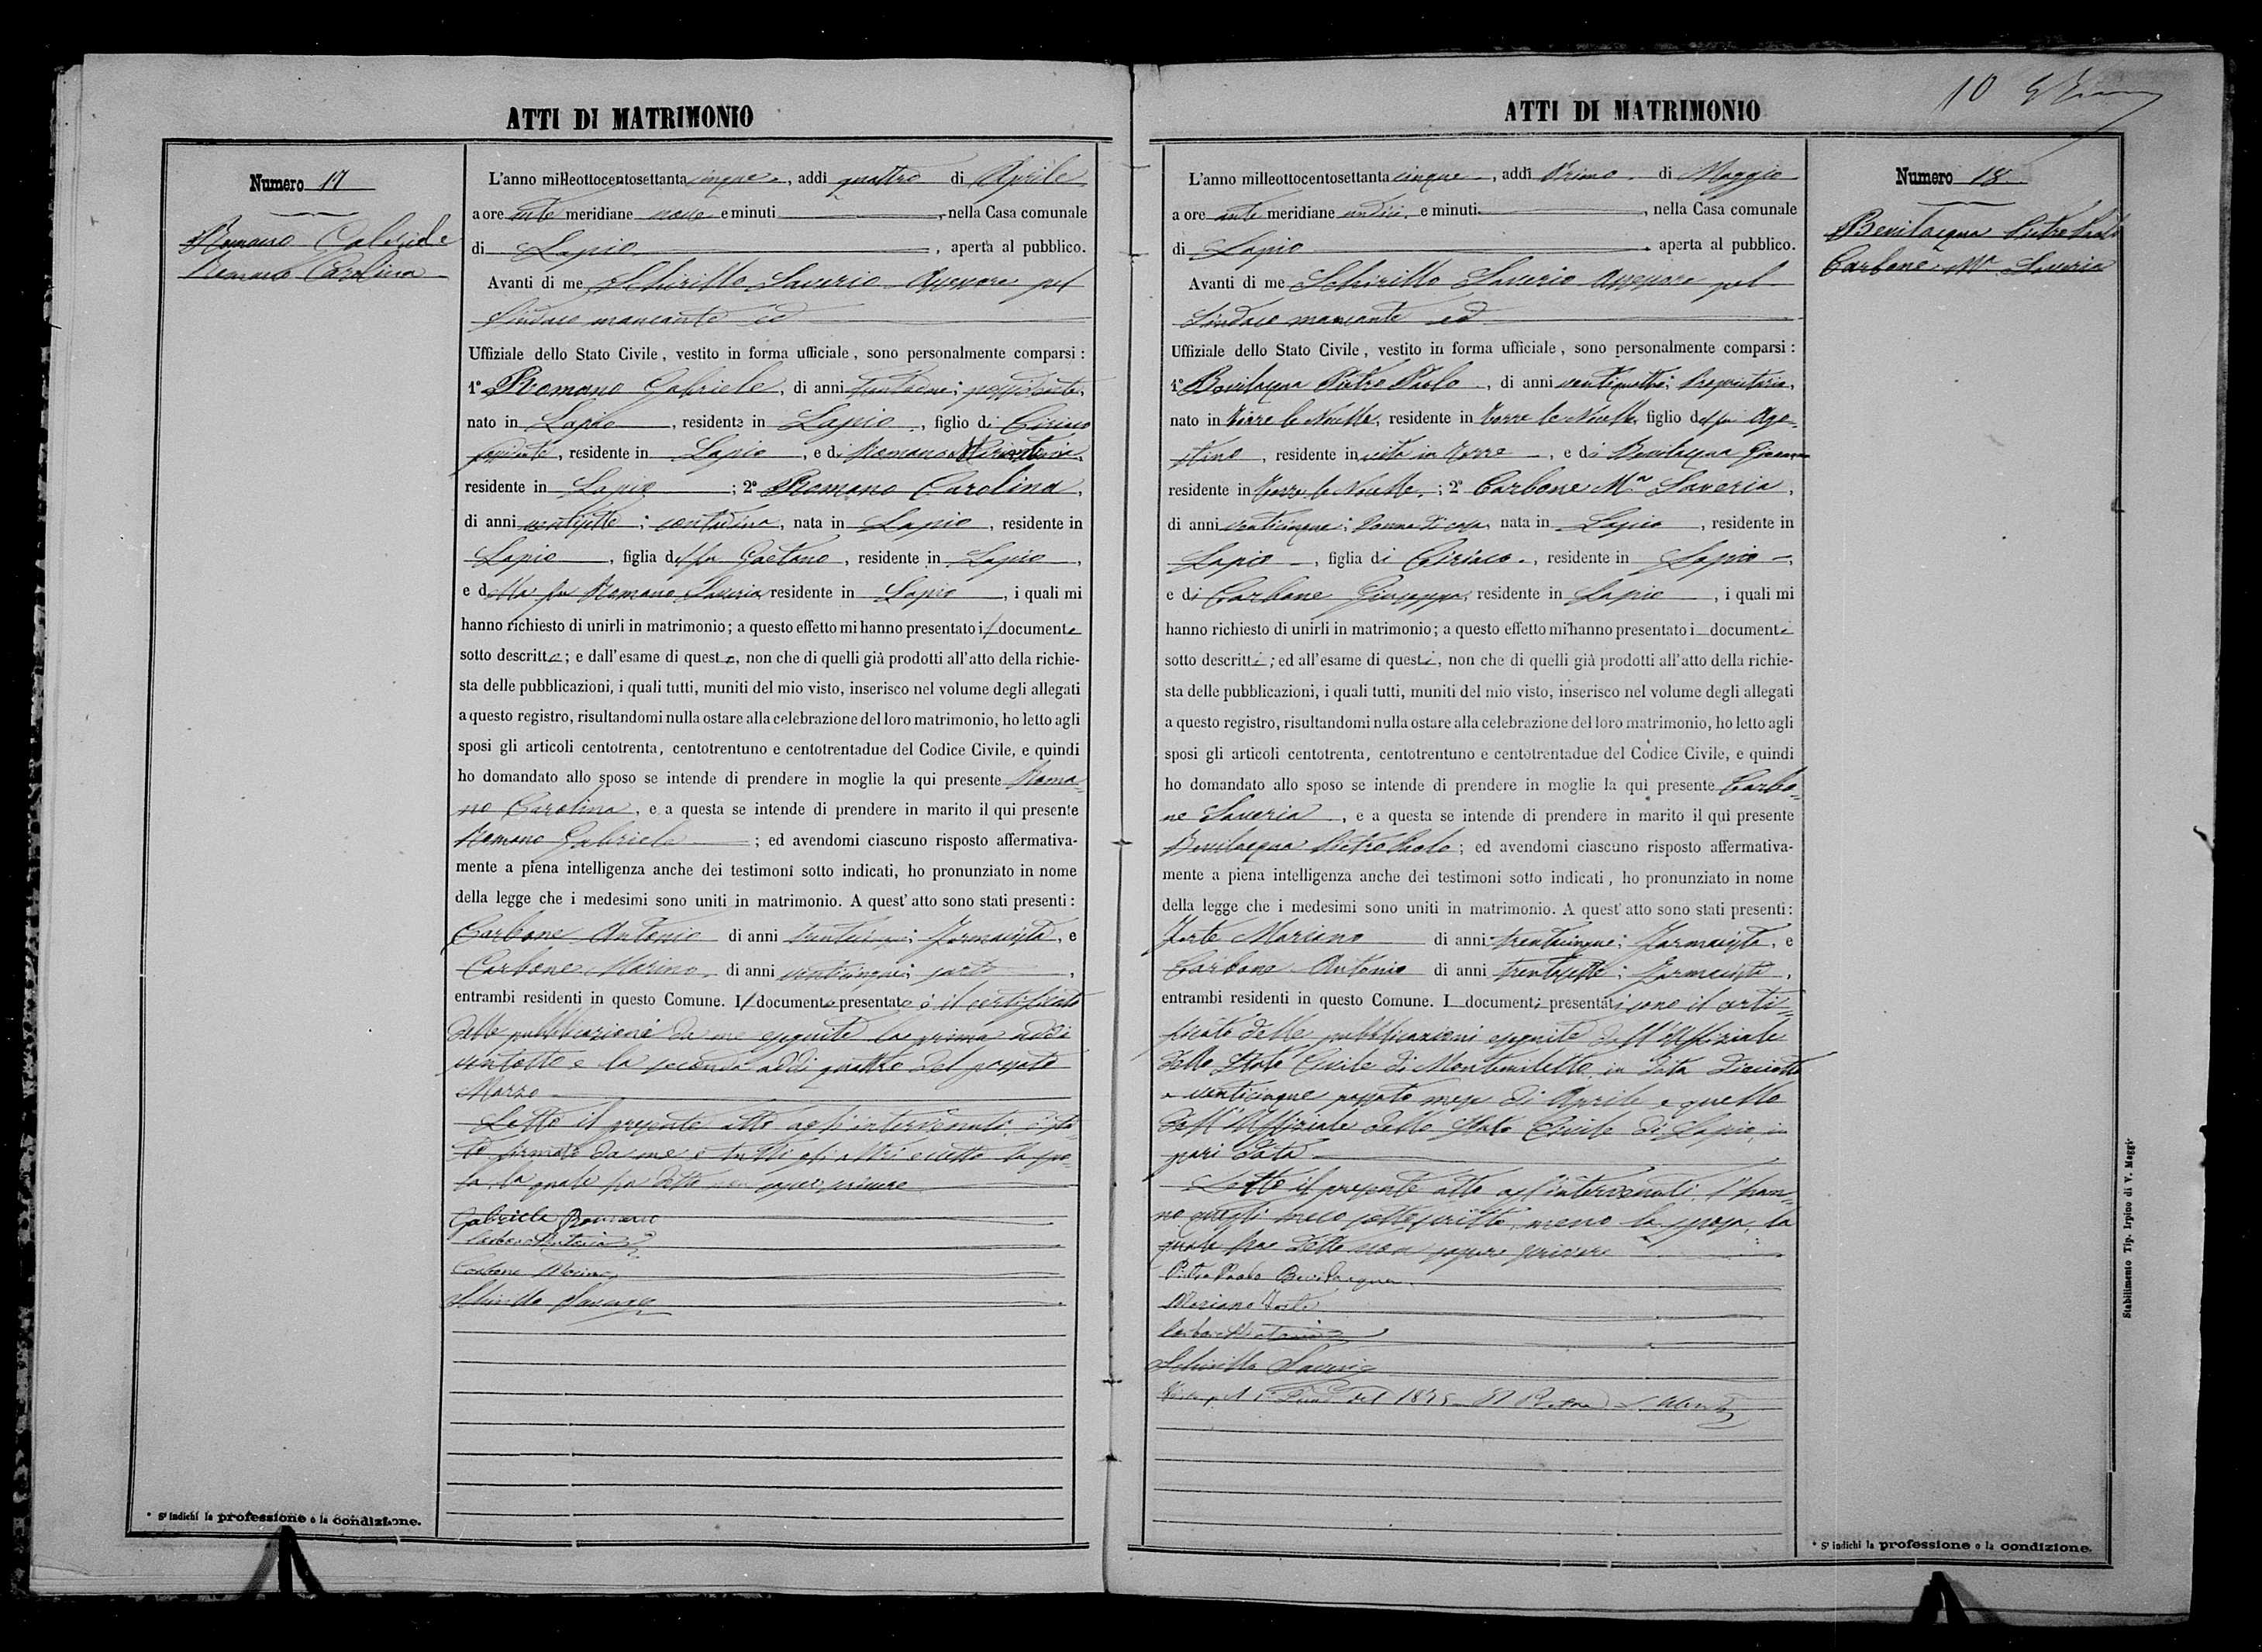 ATTI DI MATRIMONIO
Numero 17
Romano Gabriele
Romano Carolina
L'anno milleottocentosettanta cinque, addì quattro di Aprile
a ore ante meridiane nove e minuti, nella Casa comunale
di Lapio, aperta al pubblico.
Avanti di me Schirillo Saverio Assessore pel
Sindaco mancante ed
Uffiziale dello Stato Civile, vestito in forma ufficiale, sono personalmente comparsi:
1° Romano Gabriele, di anni; possidente,
nato in Lapio, residente in Lapio, figlio di Ciriaco
possidente, residente in Lapio, e di Romano
residente in Lapio; 2° Romano Carolina,
di anni ventisette; contadina, nata in Lapio, residente in
Lapio, figlia del fu Gaetano, residente in Lapio,
e della fu Romano Saveria, residente in Lapio, i quali mi
hanno richiesto di unirli in matrimonio; a questo effetto mi hanno presentato il documento
sotto descritto; e dall'esame di questo, non che di quelli già prodotti all'atto della richie-
sta delle pubblicazioni, i quali tutti, muniti del mio visto, inserisco nel volume degli allegati
a questo registro, risultandomi nulla ostare alla celebrazione del loro matrimonio, ho letto agli
sposi gli articoli centotrenta, centotrentuno e centotrentadue del Codice Civile, e quindi
ho domandato allo sposo se intende di prendere in moglie la qui presente Roma=
no Carolina, e a questa se intende di prendere in marito il qui presente
Romano Gabriele; ed avendomi ciascuno risposto affermativa-
mente a piena intelligenza anche dei testimoni sotto indicati, ho pronunziato in nome
della legge che i medesimi sono uniti in matrimonio. A quest' atto sono stati presenti:
Carbone Antonio di anni; farmacista, e
Carbone Marino di anni venticinque; sarto,
entrambi residenti in questo Comune. Il documento presentato è il certificato
delle pubblicazioni da me eseguite la prima addì
ventotto e la seconda addì quattro del passato
Marzo
Letto il presente atto agli intervenuti, è sta=
to firmato da me e tutti gli altri eccetto la spo=
sa, la quale ha detto non saper scrivere
Gabriele Romano
Carbone Antonio
Carbone Marino
Schirillo Saverio
* Si indichi la professione o la condizione.
ATTI DI MATRIMONIO
10
Numero 18
Bevilacqua Pietro Paolo
Carbone Mª Saveria
L'anno milleottocentosettanta cinque, addì Primo di Maggio
a ore ante meridiane undici, e minuti, nella Casa comunale
di Lapio aperta al pubblico.
Avanti di me Schirillo Saverio Assessore pel
Sindaco mancante ed
Uffiziale dello Stato Civile, vestito in forma ufficiale, sono personalmente comparsi:
1° Bevilacqua Pietro Paolo, di anni ventiquattro; Proprietario,
nato in Torre le Nocelle, residente in Torre le Nocelle, figlio del fu Ago=
stino, residente in vita in Torre, e di Bevilacqua
residente in Torre le Nocelle; 2° Carbone Mª Saveria,
di anni venticinque; Donna di casa, nata in Lapio, residente in
Lapio, figlia di Ciriaco, residente in Lapio,
e di Carbone Giuseppa, residente in Lapio, i quali mi
hanno richiesto di unirli in matrimonio; a questo effetto mi hanno presentato i documenti
sotto descritti; ed all'esame di questi, non che di quelli già prodotti all'atto della richie-
sta delle pubblicazioni, i quali tutti, muniti del mio visto, inserisco nel volume degli allegati
a questo registro, risultandomi nulla ostare alla celebrazione del loro matrimonio, ho letto agli
sposi gli articoli centotrenta, centotrentuno e centotrentadue del Codice Civile, e quindi
ho domandato allo sposo se intende di prendere in moglie la qui presente Carbo=
ne Saveria, e a questa se intende di prendere in marito il qui presente
Bevilacqua Pietro Paolo; ed avendomi ciascuno risposto affermativa-
mente a piena intelligenza anche dei testimoni sotto indicati, ho pronunziato in nome
della legge che i medesimi sono uniti in matrimonio. A quest' atto sono stati presenti:
Forte Mariano di anni trentacinque; farmacista, e
Carbone Antonio di anni trentasette; farmacista,
entrambi residenti in questo Comune. I documenti presentati sono il certi=
ficato delle pubblicazioni eseguite dall'Uffiziale
dello Stato Civile di Montemiletto in data dieciotto
e venticinque passato mese di Aprile e quello
dell'Uffiziale dello Stato Civile di Lapio, in
pari data
Letto il presente atto agl'intervenuti, l'han=
no questi meco sottoscritto, meno la sposa, la
quale ha detto non sapere scrivere
Pietro Paolo Bevilacqua
Mariano Forte
Carbone Antonio
Schirillo Saverio
1875 Il Pretore
* Si indichi la professione o la condizione.
Stabilimento Tip. Irpino di V. Maggi